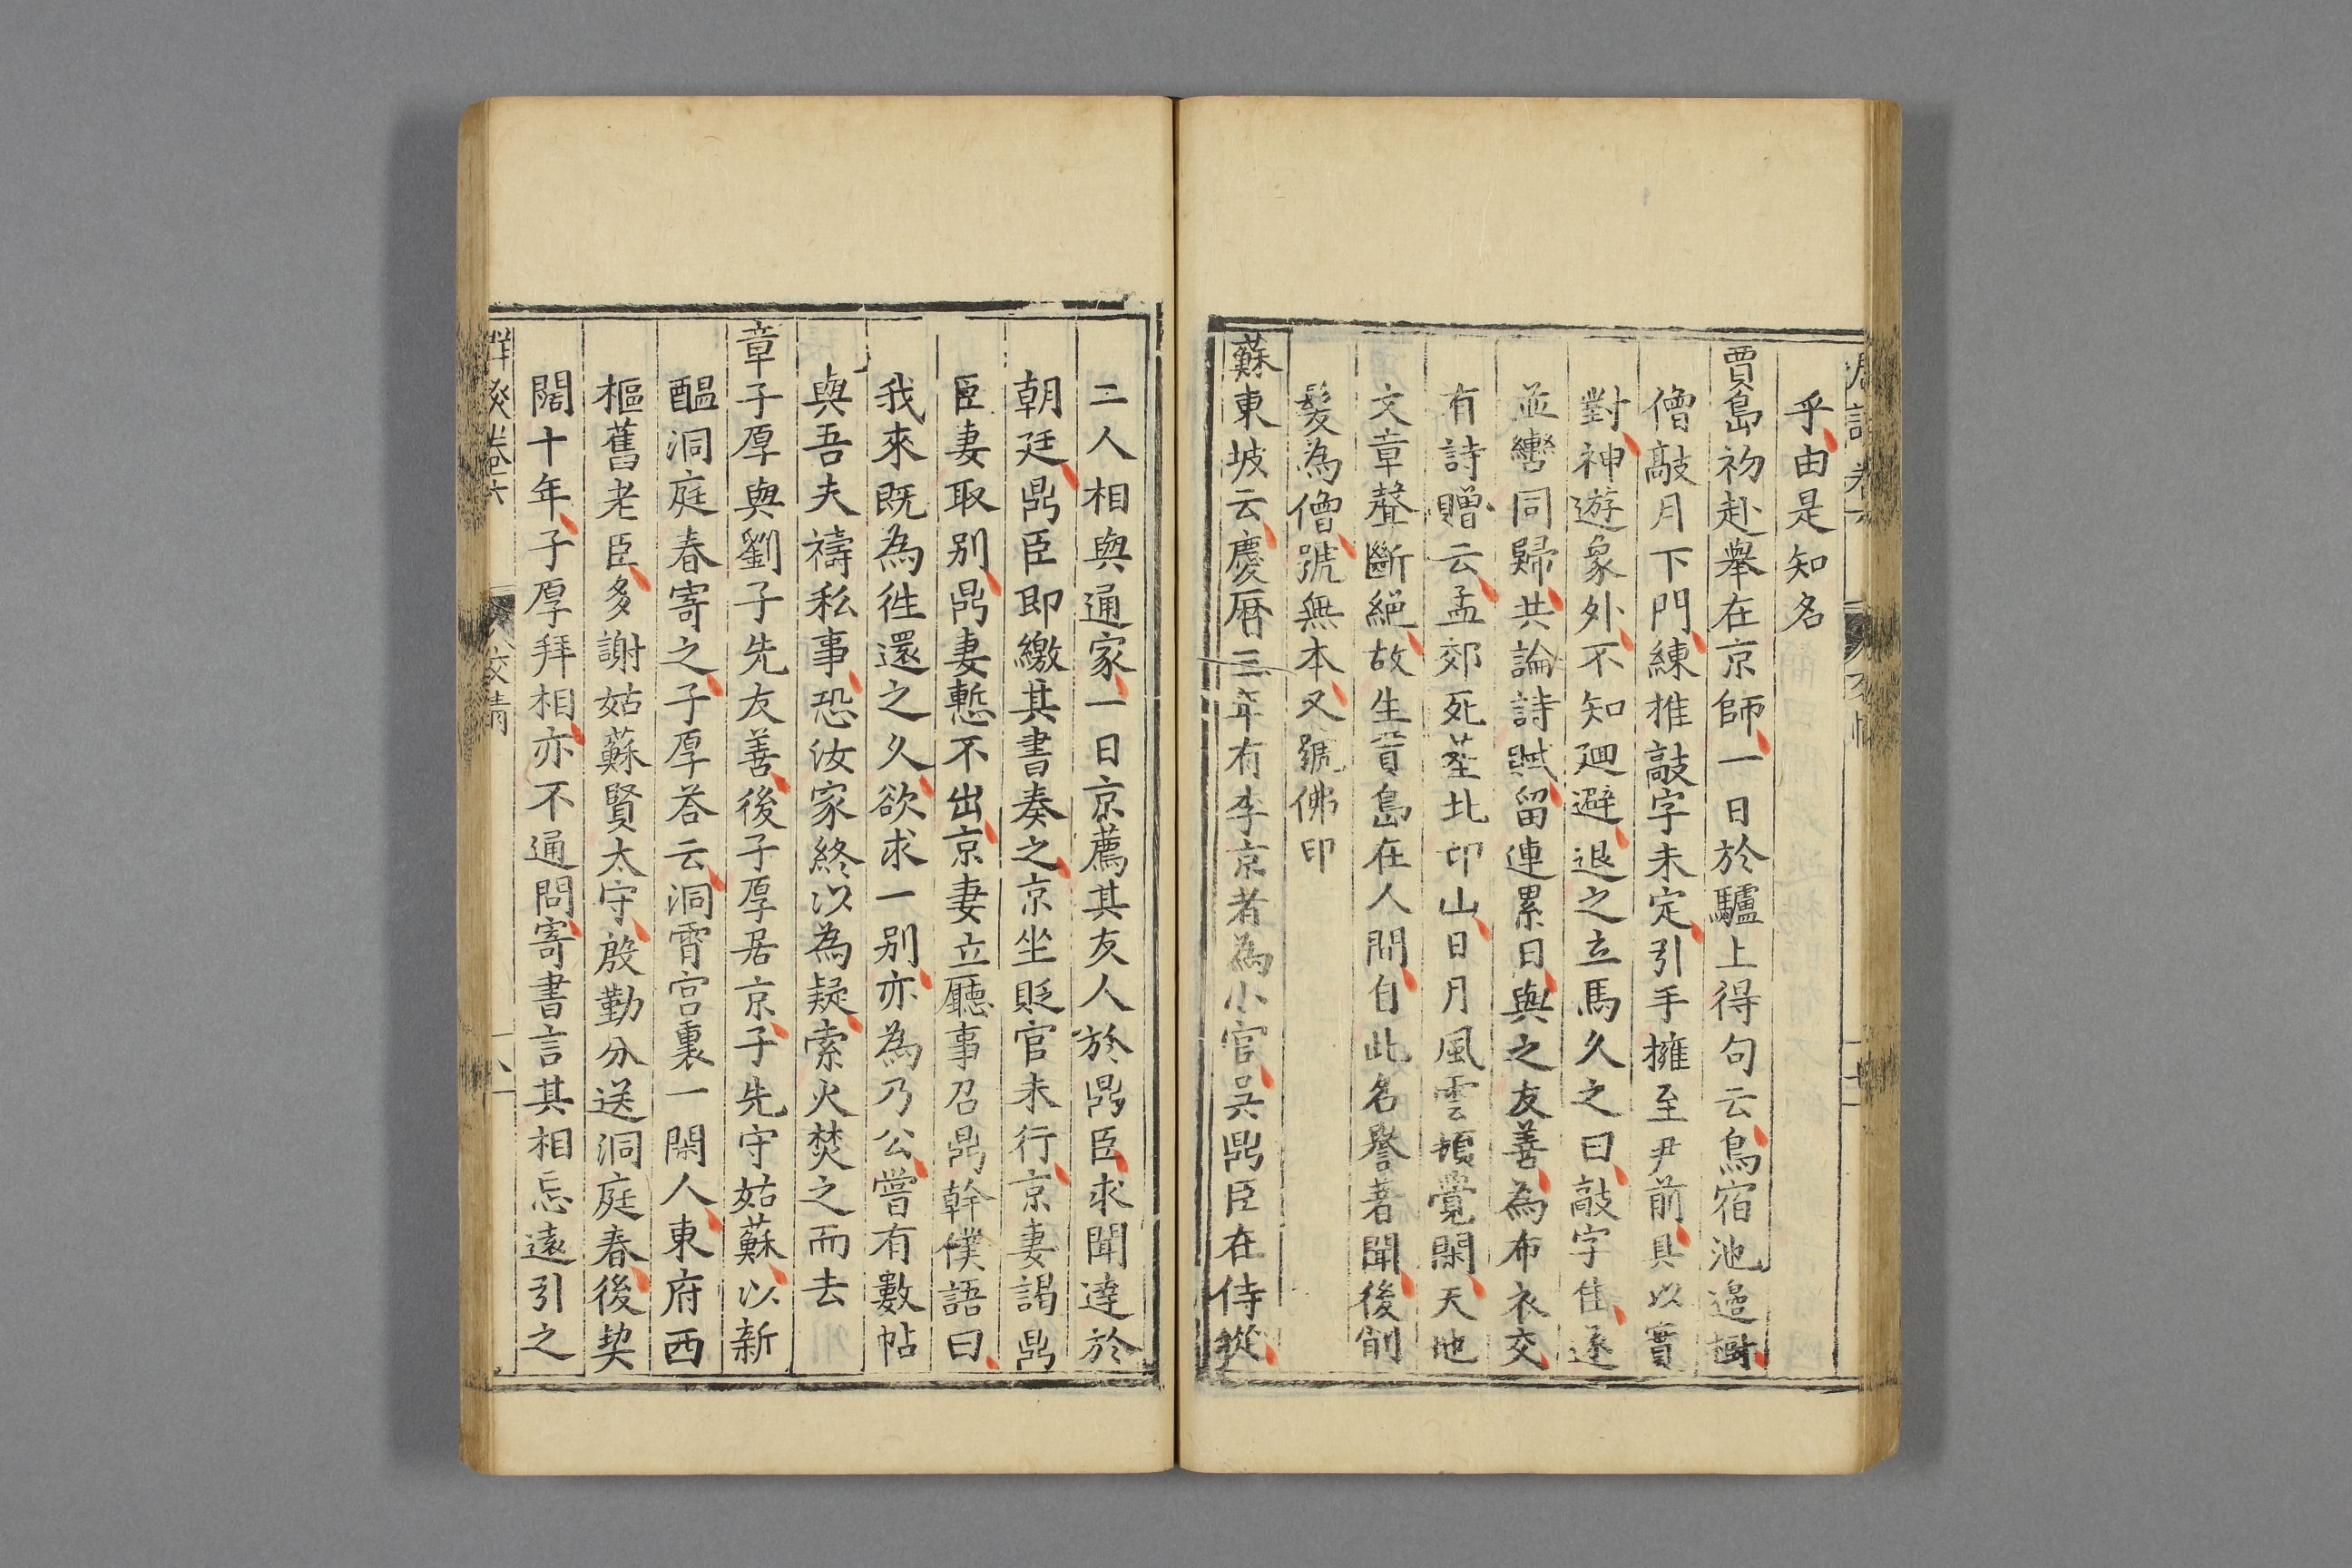 乎由是知名
賈島初赴舉在京師一日於驢上得句云鳥宿池邊樹
僧敲月下門練推敲字未定引手擁至尹前具以實
對神遊象外不知迴避退之立馬久之曰敲字佳遂
並轡同歸共論詩賦留連累日與之友善為布衣交
有詩贈云孟郊死葬北邙山日月風雲頓覺閑天地
文章聲斷絕故生賈島在人間自此名譽著聞後削
髮為僧號無本又號佛印
蘇東坡云慶曆三年有李京者為小官吳鼎臣在侍從
二人相與通家一日京薦其友人於鼎臣求聞達於
朝廷鼎臣即繳其書奏之京坐貶官未行京妻謁鼎
臣妻取別鼎妻慙不出京妻立廳事召鼎幹僕語曰
我來既為徃還之久欲求一别亦為乃公嘗有數帖
與吾夫禱私事恐汝家終以為疑索火焚之而去
章子厚與劉子先友善後子厚居京子先守姑蘇以新
醞洞庭春寄之子厚荅云洞霄宮裏一閑人東府西
樞舊老臣多謝姑蘇賢太守殷勤分送洞庭春後契
闊十年子厚拜相亦不通問寄書言其相忘遠引之
卷六